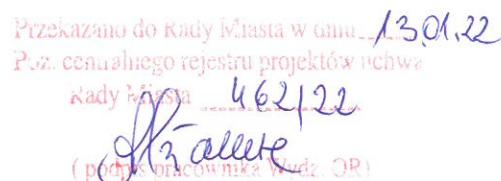 Przekazano do Rady Miasta w dniu 13.01.22
Poz. centralnego rejestru projektów uchwał
Rady Miasta 462/22
( podpis pracownika Wydz. OR)